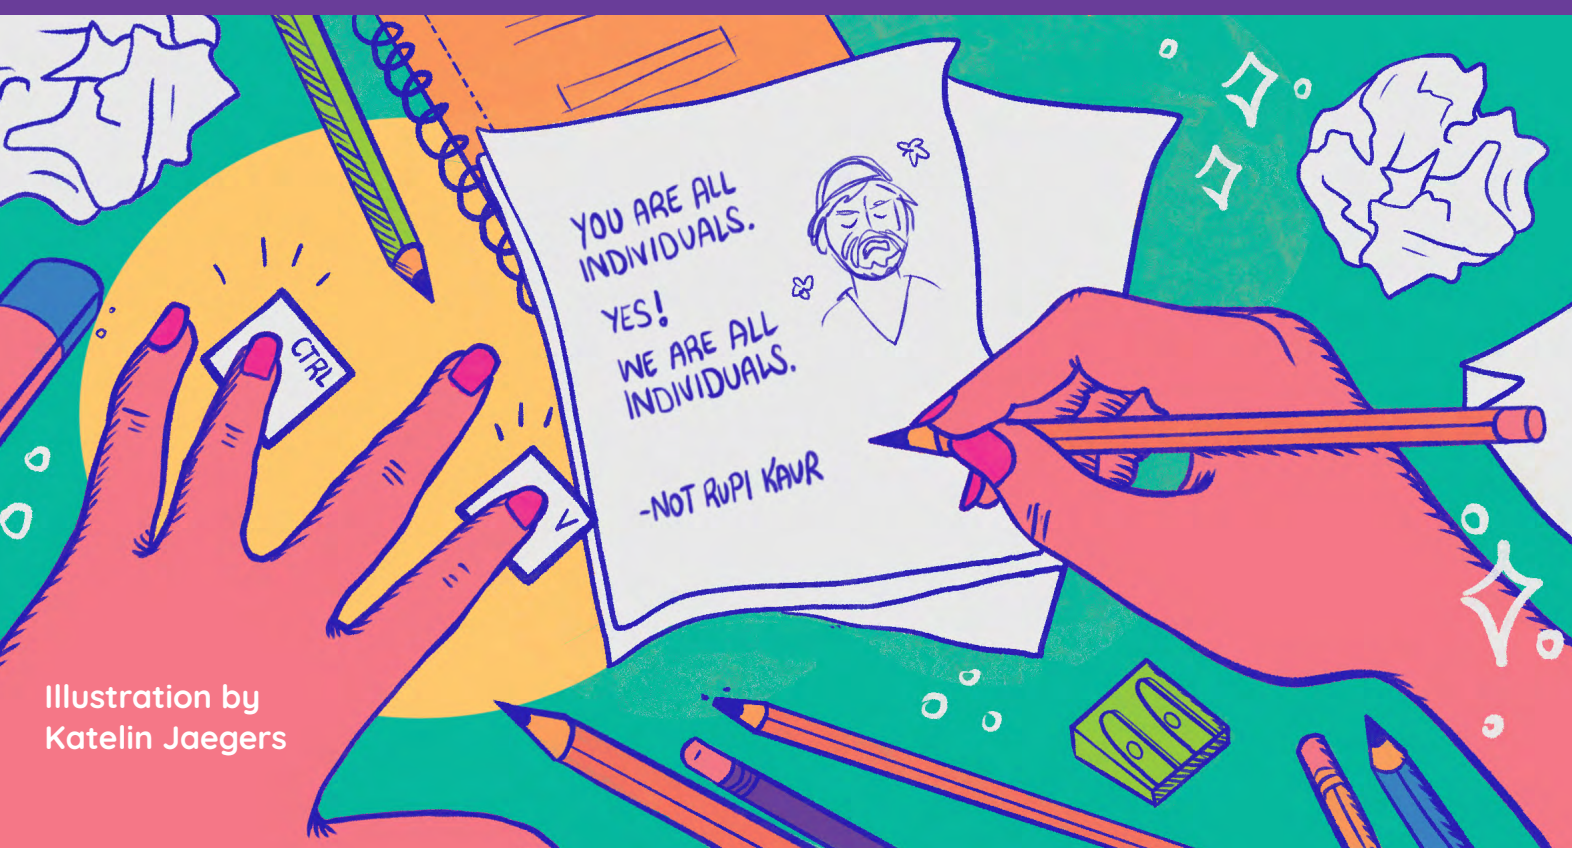 YOU ARE ALL
INDIVIDUALS.
YES!
WE ARE ALL
INDIVIDUALS.
-NOT RUPI KAUR
CTRL
V
Illustration by
Katelin Jaegers